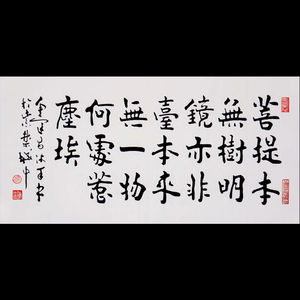 菩提本
無樹明
鏡亦非
臺本来
無一物
何處惹
塵埃